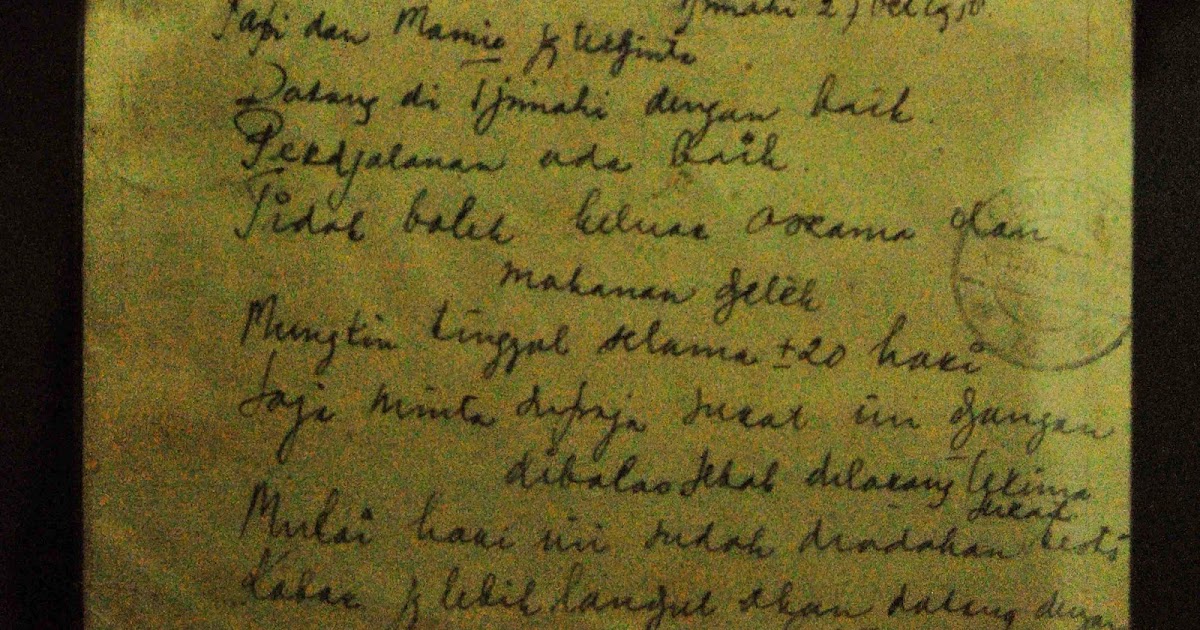 Tjimahi 2
Papi dan Mamie jg tertjinta
Datang di Tjimahi dengan baik.
Perdjalanan ada baik.
Tidak boleh keluar asrama dan
makanan djelek
Mungkin tinggal selama ±20 hari
Saja minta supaja surat ini djangan
dibalas sebab dilarang terima
surat
Mulai hari ini sudah diadakan tests
Kabar jg lebih landjut akan datang dengan